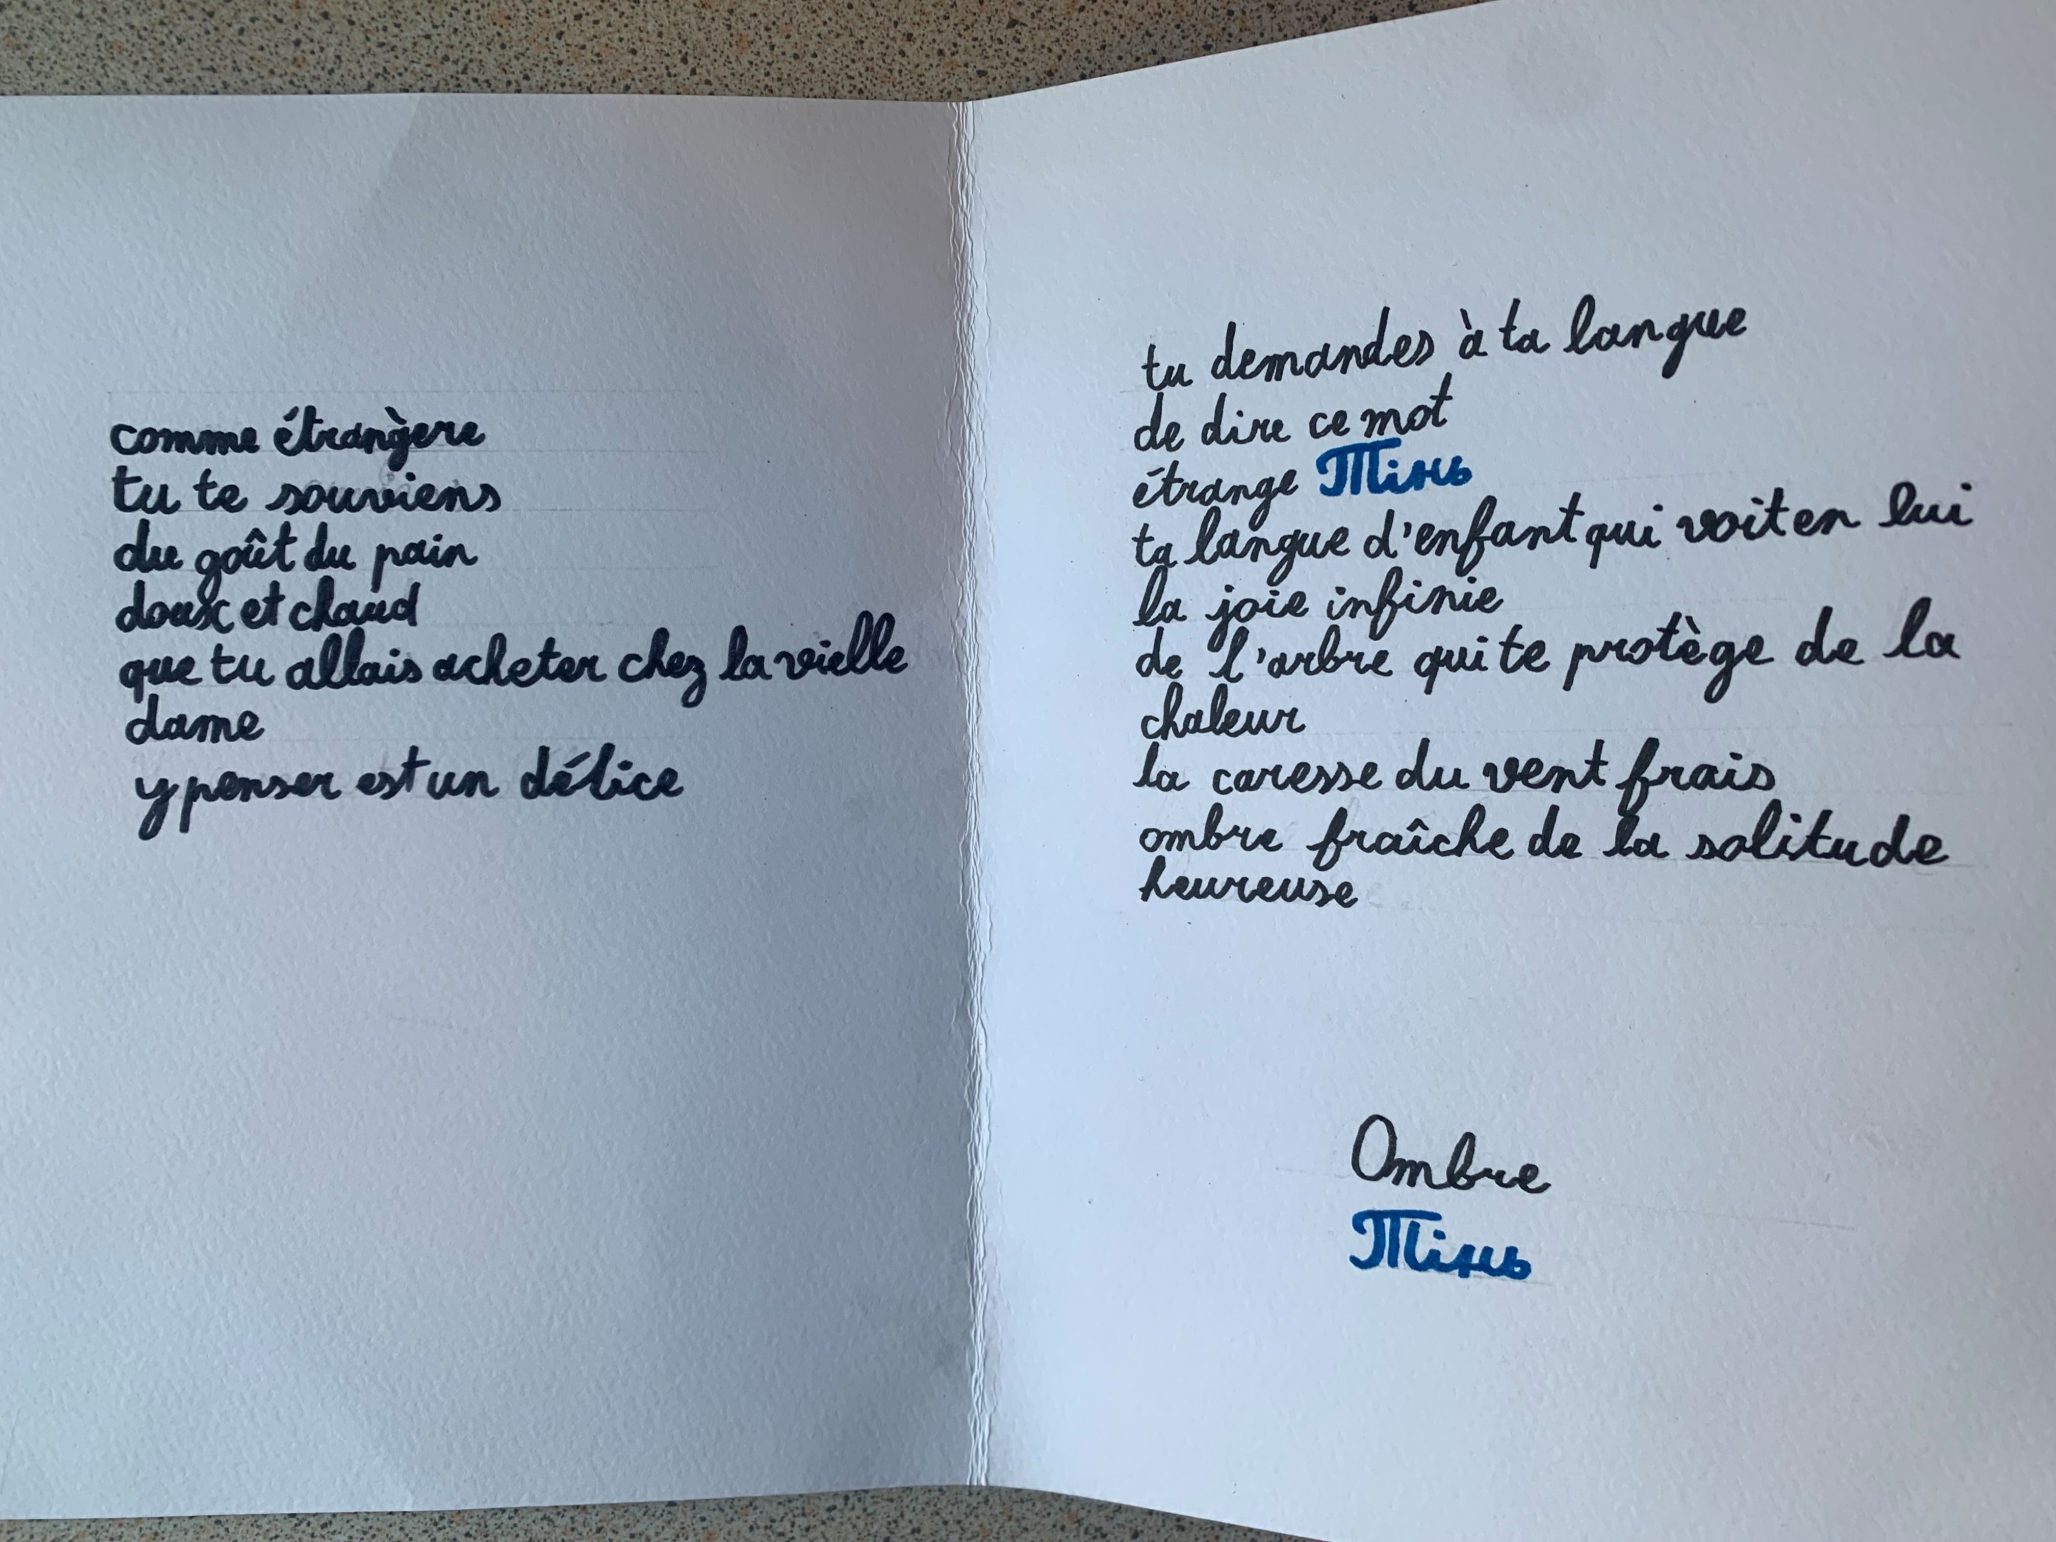 comme étrangère
tu te souviens
du goût du pain
doux et chaud
que tu allais acheter chez la vielle
dame
y penser est un délice
tu demandes à ta langue
de dire ce mot
étrange Тінь
ta langue d'enfant qui voit en lui
la joie infinie
de l'arbre qui te protège de la
chaleur
la caresse du vent frais
ombre fraîche de la solitude
heureuse
Ombre
Тінь